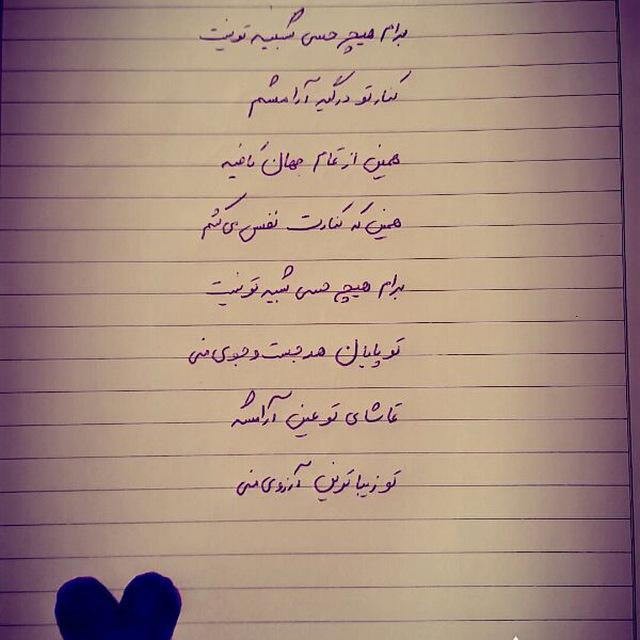 برام هیچ حسی شبیه تو نیست
کنار تو درگیر آرامشم
همین از تمام جهان کافیه
همین که کنارت نفس می‌کشم
برام هیچ حسی شبیه تو نیست
تو پایان هر جست و جوی منی
تماشای تو عین آرامشه
تو زیباترین آرزوی منی